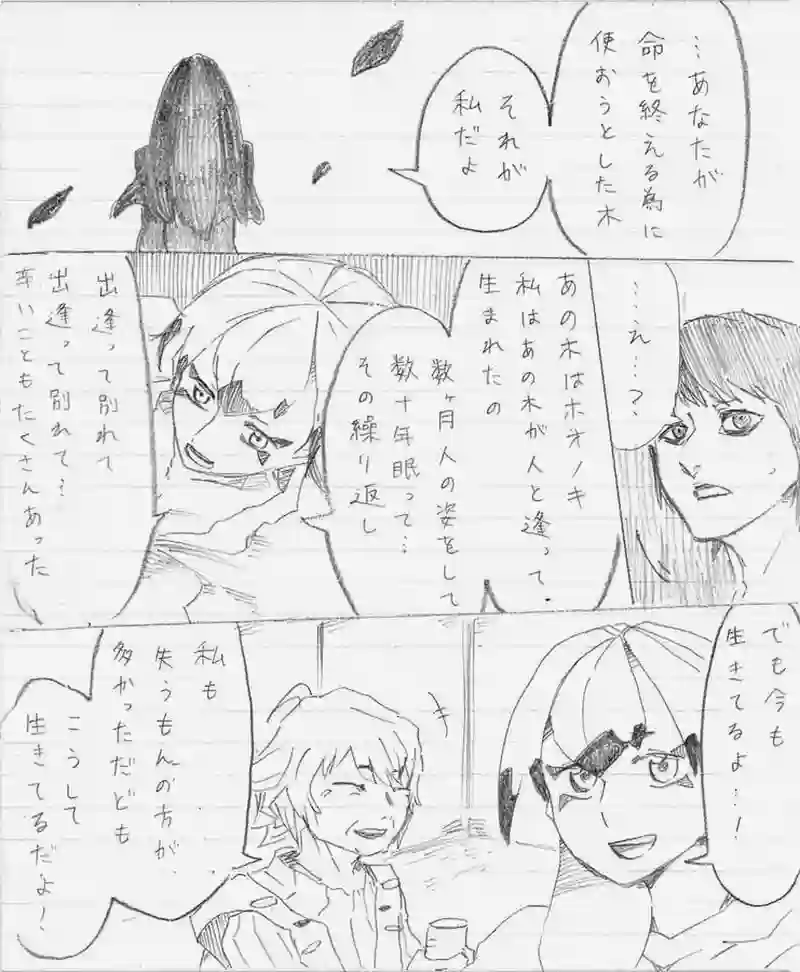 …あなたが
命を終える為に
使おうとした木
それが
私だよ
…え…？
あの木はホオノキ
私はあの木が人と逢って
生まれたの
数ヶ月人の姿をして
数十年眠って…
その繰り返し
出逢って別れて
出逢って別れて…
辛いこともたくさんあった
でも今も
生きてるよ…！
私も
失うもんの方が
多かっただども
こうして
生きてるだよ！